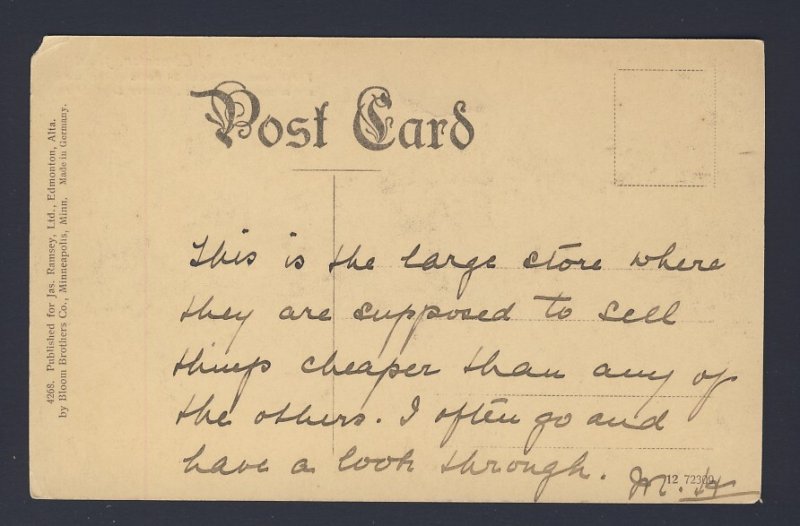 Post Card
4268. Published for Jas. Ramsey, Ltd., Edmonton, Alta.
by Bloom Brothers Co., Minneapolis, Minn. Made in Germany.
This is the large store where
they are supposed to sell
things cheaper than any of
the others. I often go and
have a look through.
12 72302